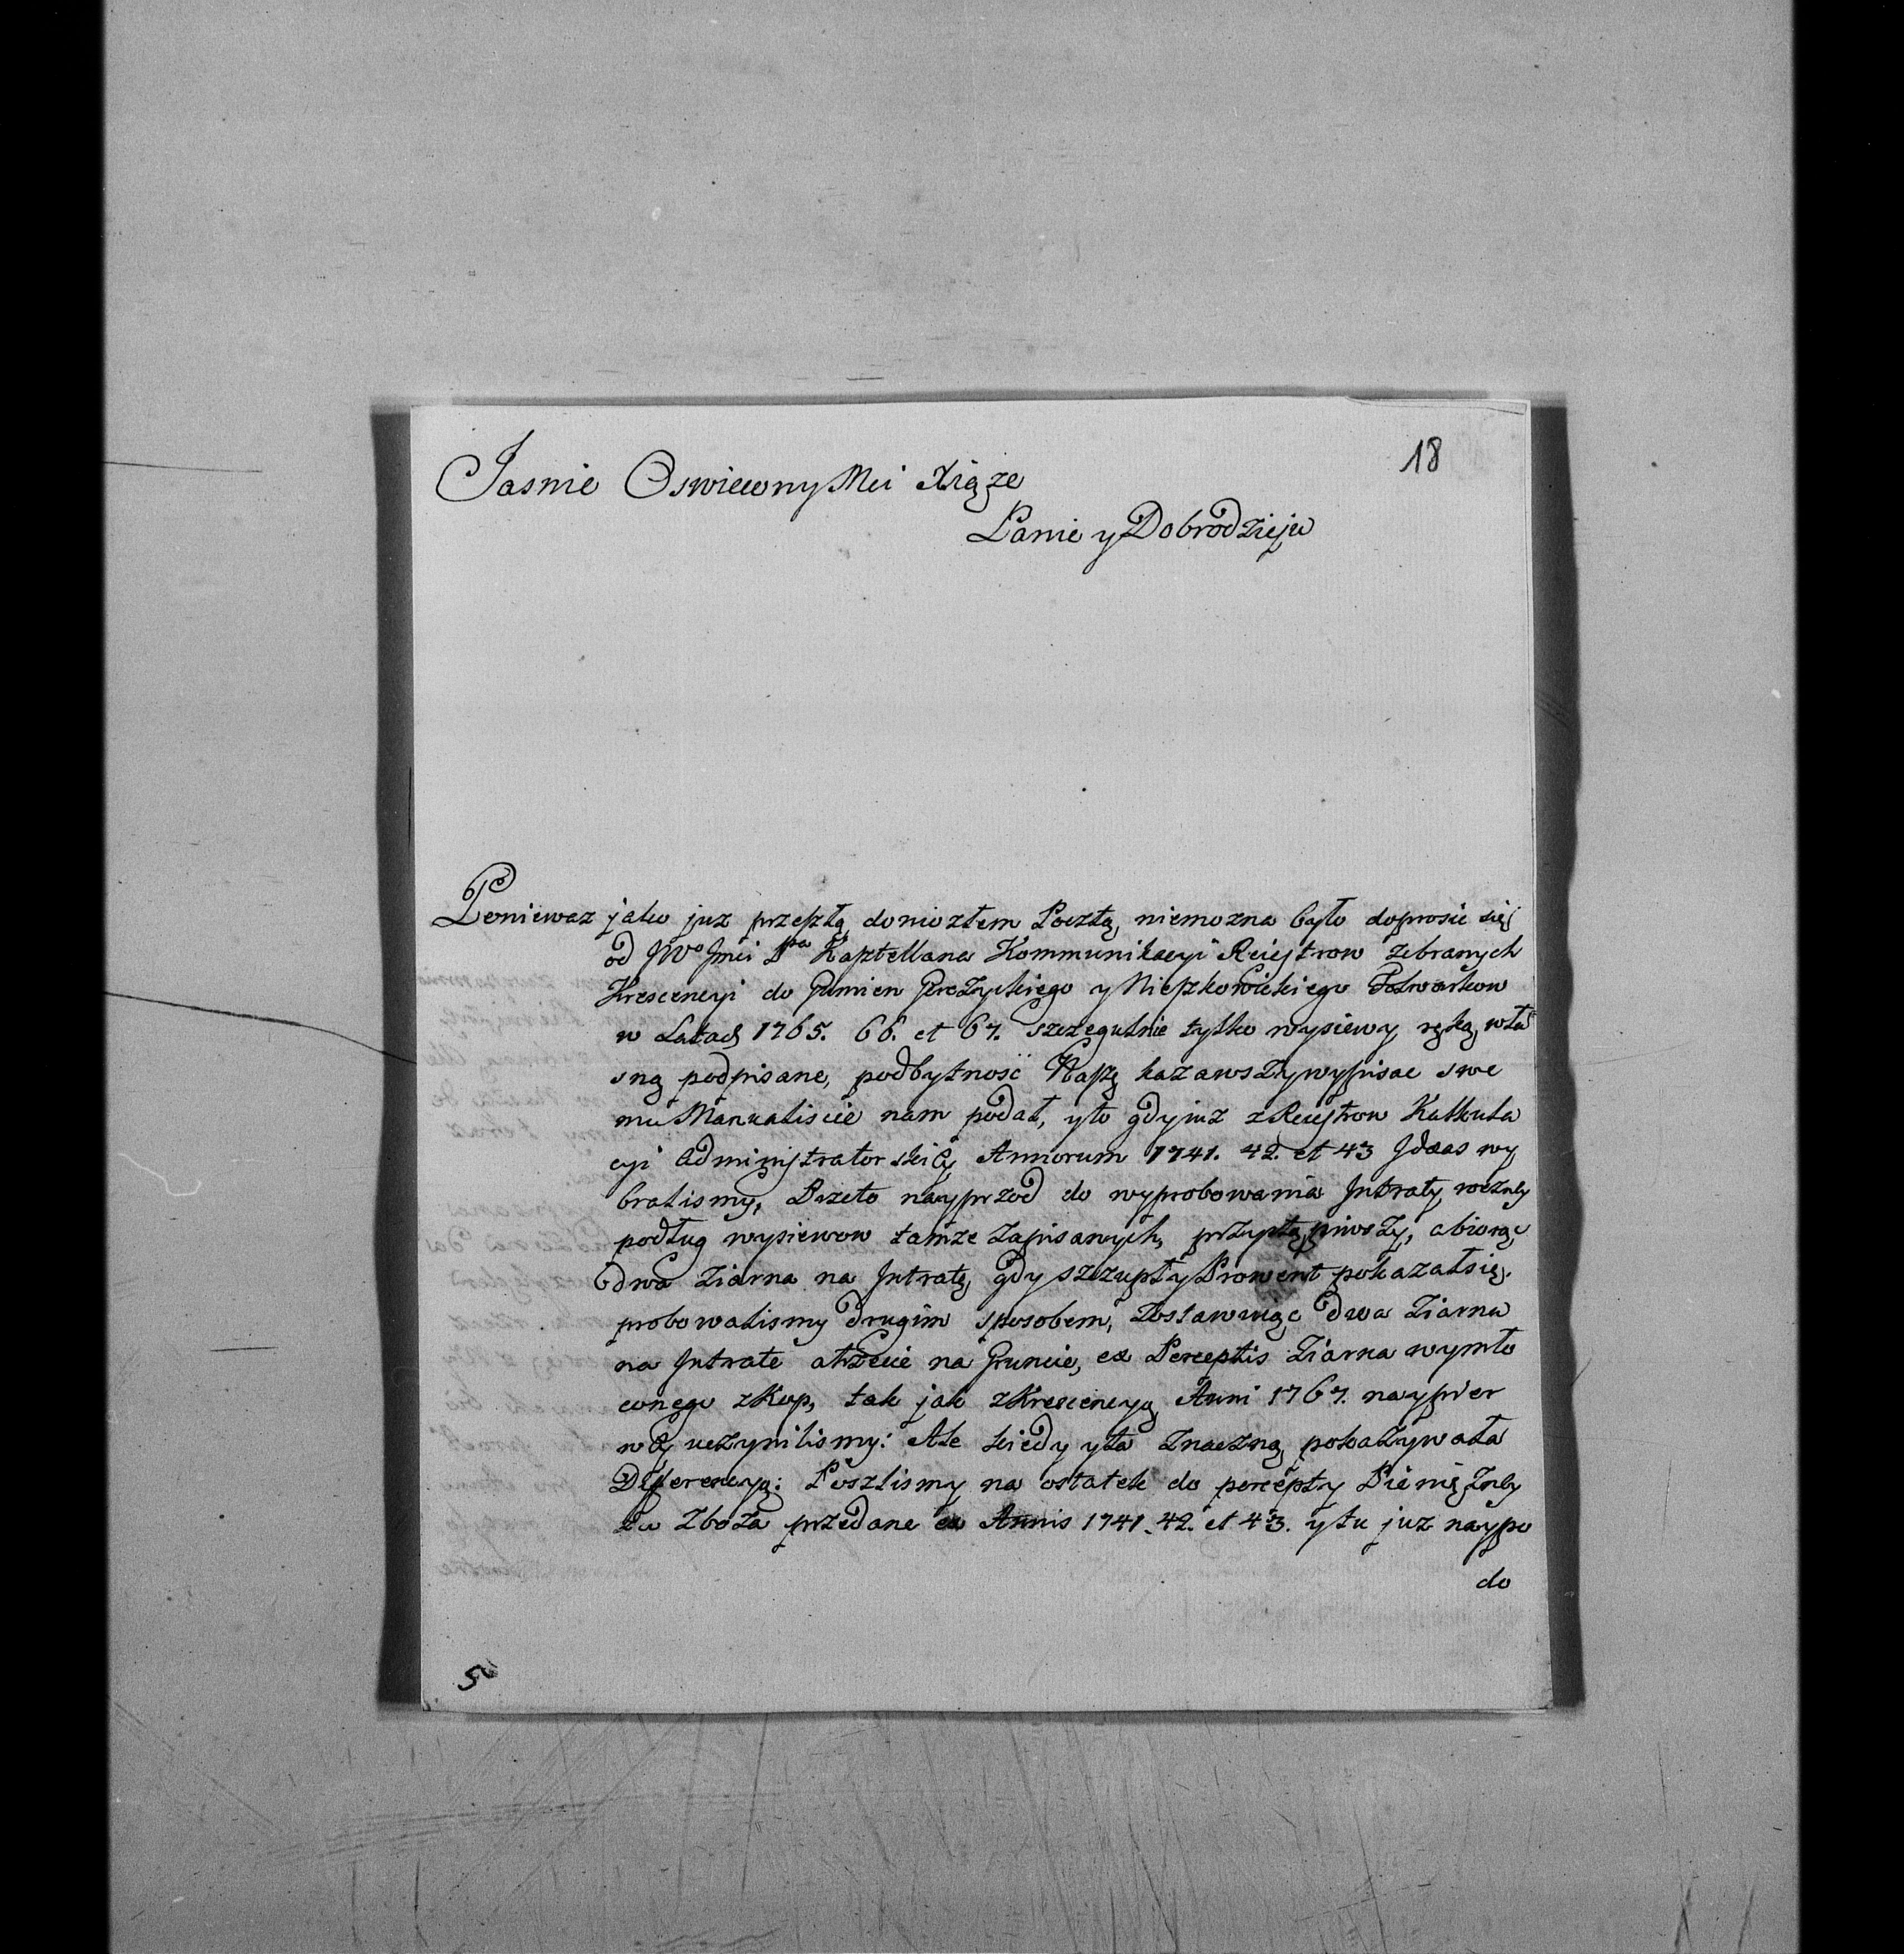 18
Jasnie Oswiecony Mci Xiąze
Panie y Dobrodzieju
Poniewaz jako juz przeszłą doniozłem Pocztą, niemozna było doprosic się
od JWo Jmci Pa Kasztellana Kommunikacyi Reiestrow zebranych
Krescencyi do Gumien Hreżyckiego y Nieszkowickiego Folwarkow
w Latach 1765. 66. et 67. szczegulnie tylko wysiewy ręką wła
sną podpisane, podbytność Naszę kazawszy wypisac swe
mu Manualiscie nam podał, yto gdyiuz z Reiestrow Kalkula
cyi Administratorskiey Annorum 1741. 42. et 43 Ideas wy
bralismy, Przeto nayprzod do wyprobowania Intraty roczney
podług wysiewow tamze zapisanych, przystąpiwszy, abiorąc
dwa Ziarna na Intratę, gdy szczupły Prowent pokazałsię.
probowalismy drugim sposobem, zostawuiąc dwa Ziarna
na Intrate atrzecie na Gruncie, ex Perceptis Ziarna wymło
conego zKop, tak jak zKrescencyą Anni 1767. naypier
wey uczynilismy: Ale kiedy yta znaczną pokazywała
Dyfferencyą: Poszlismy na ostatek do percepty Pieniężney
za Zboża przedane ex Annis 1741. 42. et 43. ytu juz naypo
do
5